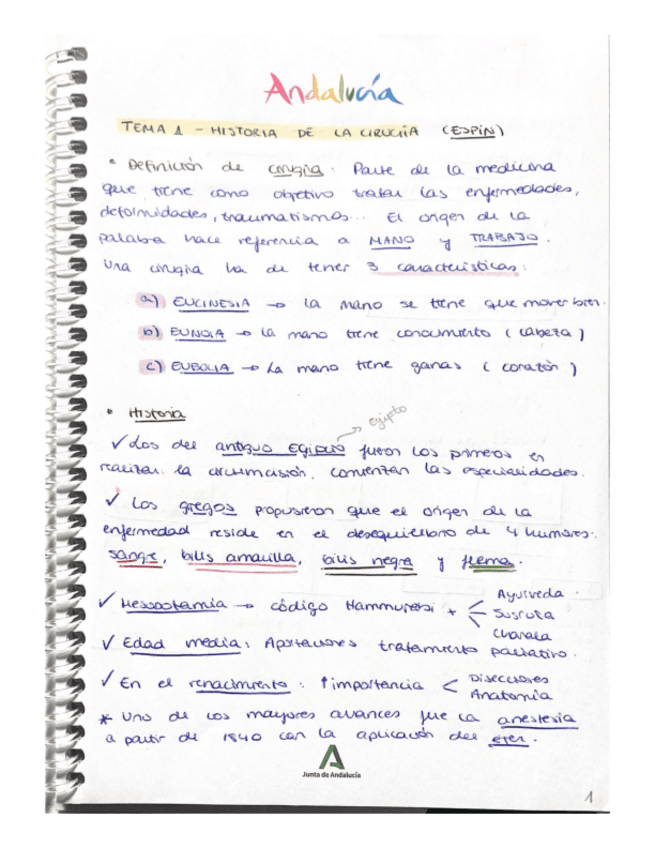 Andalucía
TEMA 1 - HISTORIA DE LA CIRUGÍA (ESPÍN)
• Definición de cirugía: Parte de la medicina
que tiene como objetivo tratar las enfermedades,
deformidades, traumatismos... El origen de la
palabra hace referencia a MANO y TRABAJO.
Una cirugía ha de tener 3 características:
a) EUCINESIA → La mano se tiene que mover bien.
b) EUNOIA → La mano tiene conocimiento (cabeza)
c) EUBOLIA → La mano tiene ganas (corazón)
• Historia
egipto
✓ Los del antiguo EGIPTO fueron los primeros en
realizar la circuncisión, comienzan las especialidades.
✓ Los griegos propusieron que el origen de la
enfermedad reside en el desequilibrio de 4 humores:
sangre, bilis amarilla, bilis negra y flema.
✓ Mesopotamia → código Hammurabi + < Ayurveda
Susruta
Charaka
✓ Edad media: Aportaciones tratamiento paliativo.
✓ En el renacimiento: ↑ importancia < Disecciones
Anatomía
* Uno de los mayores avances fue la anestesia
a partir de 1840 con la aplicación del eter.
Junta de Andalucía
1